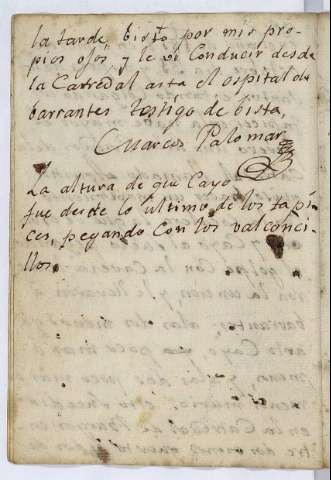 la tarde bisto por mis pro-
pios ojos, y le vi Conducir desde
la Catredal asta el ospital de
barrantes testigo de bista,
Marcos Palomar
La altura de que Cayo
fue desde lo ultimo de los tapi-
ces, pegando con los valconci-
llos.